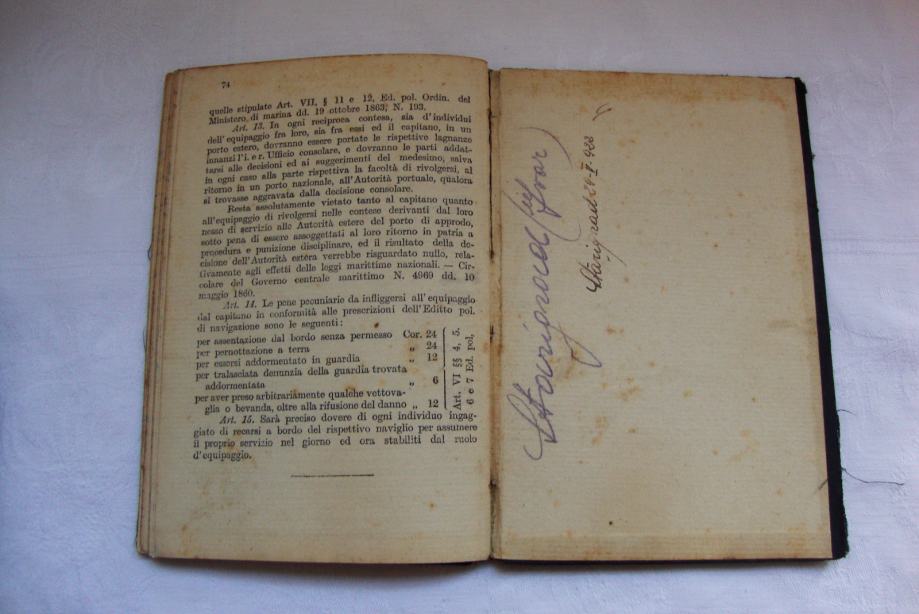 74
quelle stipulate Art. VII, § 11 e 12, Ed. pol. Ordin. del
Ministero, di marina dd. 19 ottobre 1863, N. 193.
Art. 13. In ogni reciproca contesa, sia d'individui
dell'equipaggio fra loro, sia fra essi ed il capitano, in un
porto estero, dovranno essere portate le rispettive lagnanze
innanzi l'i. e r. Ufficio consolare, e dovranno le parti addat-
tarsi alle decisioni ed ai suggerimenti del medesimo, salva
in ogni caso alla parte rispettiva la facoltà di rivolgersi, al
ritorno in un porto nazionale, all'Autorità portuale, qualora
si trovasse aggravata dalla decisione consolare.
Resta assolutamente vietato tanto al capitano quanto
all'equipaggio di rivolgersi nelle contese derivanti dal loro
nesso di servizio alle Autorità estere del porto di approdo,
sotto pena di essere assoggettati al loro ritorno in patria a
procedura e punizione disciplinare, ed il risultato della de-
cisione dell'Autorità estera verrebbe risguardato nullo, rela-
tivamente agli effetti delle leggi marittime nazionali. — Cir-
colare del Governo centrale marittimo N. 4969 dd. 10
maggio 1860.
Art. 14. Le pene pecuniarie da infliggersi all'equipaggio
dal capitano in conformità alle prescrizioni dell'Editto pol.
di navigazione sono le seguenti:
per assentazione dal bordo senza permesso Cor. 24
per pernottazione a terra „ 24
per essersi addormentato in guardia „ 12
per tralasciata denunzia della guardia trovata
addormentata „ 6
per aver preso arbitrariamente qualche vettova-
glia o bevanda, oltre alla rifusione del danno „ 12
Art. VI §§ 4, 5,
6 e 7 Ed. pol.
Art. 15. Sarà preciso dovere di ogni individuo ingag-
giato di recarsi a bordo del rispettivo naviglio per assumere
il proprio servizio nel giorno ed ora stabiliti dal ruolo
d'equipaggio.
Starigrad
Starigrad 24